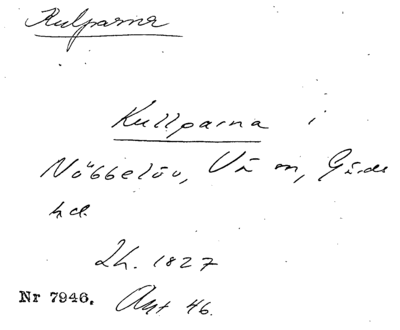 Kulparna
Kullparna i
Nöbbelöv, Vä m, Gärds
hd.
Lh. 1827
Nr 7946. Akt 46.